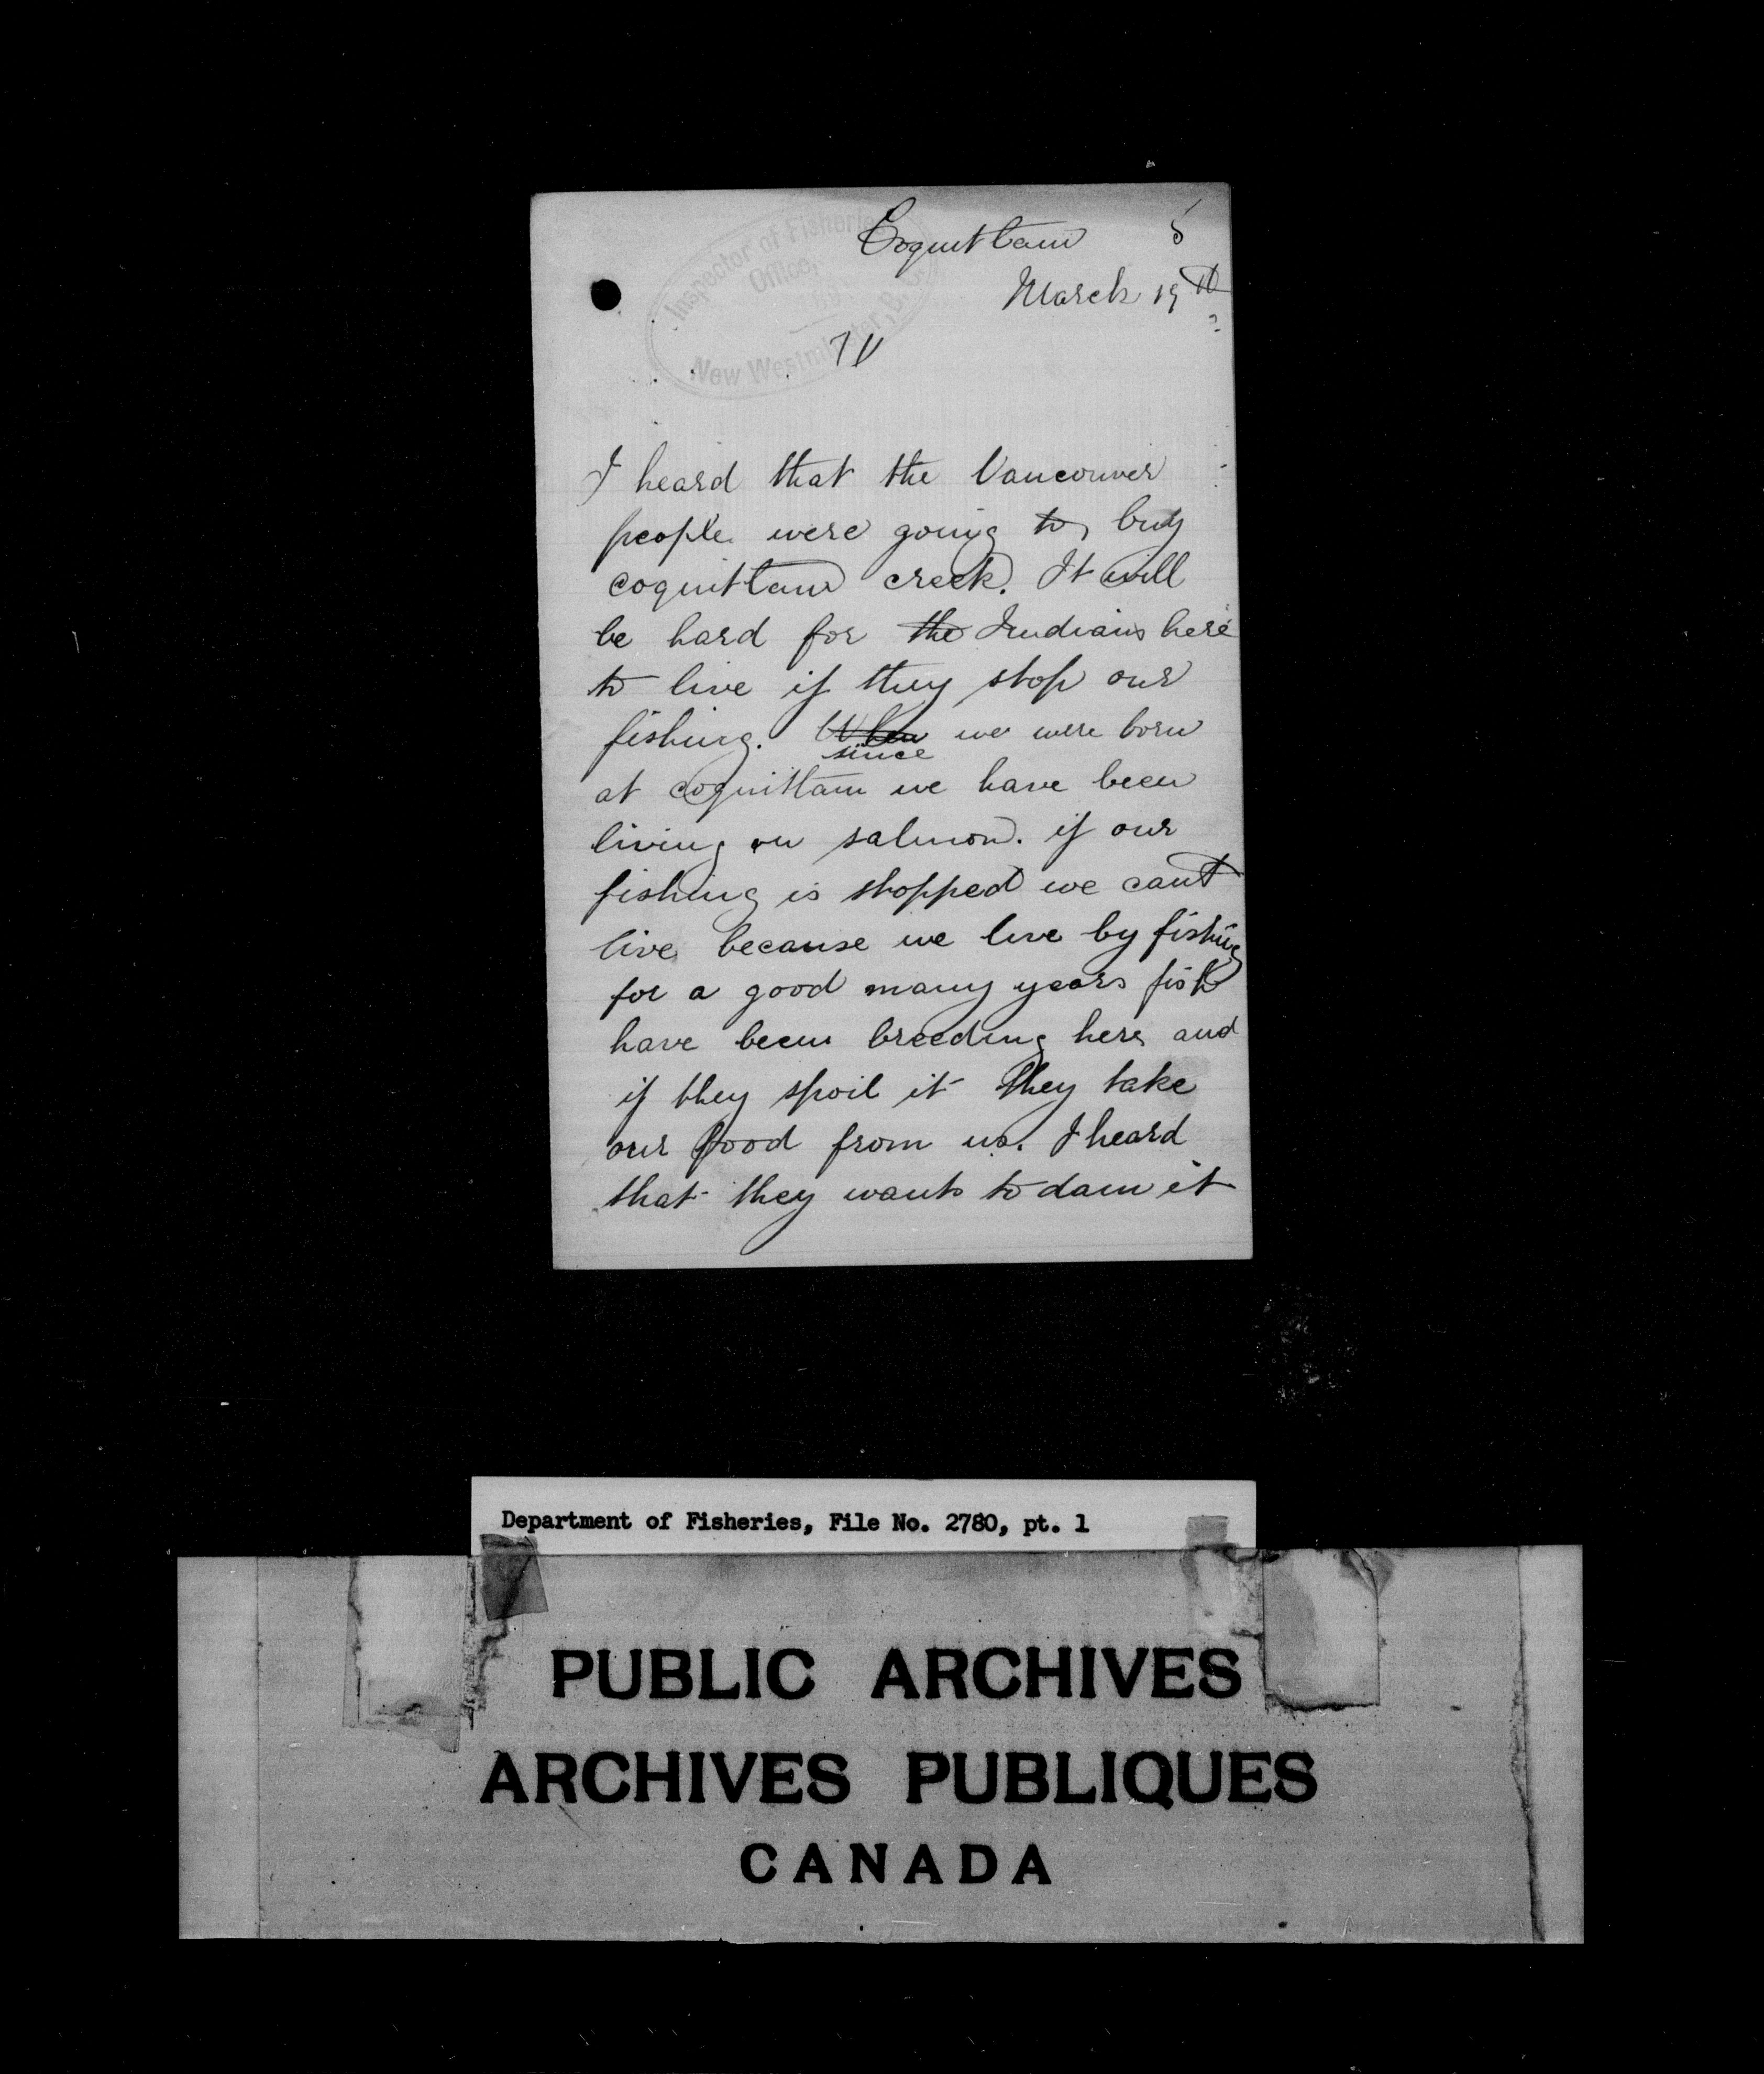 Coquittam 5
March 19th
Inspector of Fisheries
Office,
New Westminster, B.C.
I heard that the Vancouver
people were going to buy
coquittam creek. It will
be hard for the Indians here
to live if they stop our
fishing. When we were born
since
at coquittam we have been
living on salmon. if our
fishing is stopped we cant
live because we live by fishing
for a good many years fish
have been breeding here and
if they spoil it they take
our food from us. I heard
that they wants to dam it
Department of Fisheries, File No. 2780, pt. 1
PUBLIC ARCHIVES
ARCHIVES PUBLIQUES
CANADA